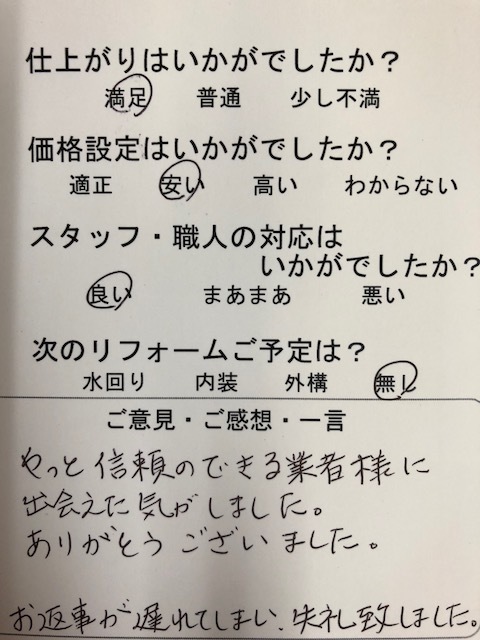 仕上がりはいかがでしたか？
満足 普通 少し不満
価格設定はいかがでしたか？
適正 安い 高い わからない
スタッフ・職人の対応は
いかがでしたか？
良い まあまあ 悪い
次のリフォームご予定は？
水回り 内装 外構 無し
ご意見・ご感想・一言
やっと信頼のできる業者様に
出会えた気がしました。
ありがとうございました。
お返事が遅れてしまい、失礼致しました。